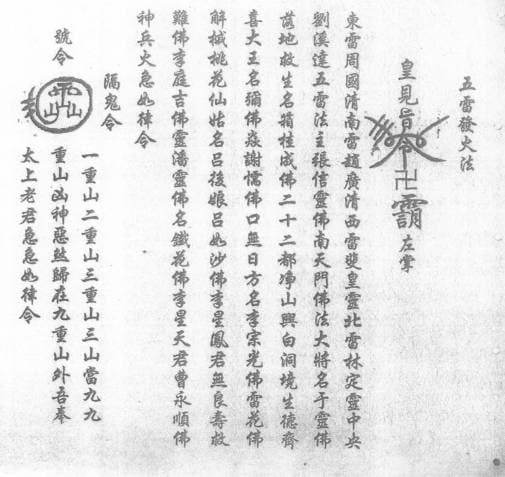 五雷發火法
皇見旨令卍左掌
東雷周國清南雷趙廣清西雷斐皇靈北雷林定靈中央
劉溪達五雷法主張信靈佛南天門佛法大將名于靈佛
地救生名桂成佛二十二都淨山興白洞境生德齊
喜大王名彌佛謝懦佛口無日方名李宗光佛雷花佛
解械桃花仙姑名呂後娘呂如沙佛李星鳳君無良壽救
難佛李庭吉佛靈潘靈佛名鐵花佛李星天君曹永順佛
神兵火急如律令
隔鬼令
號令
一重山二重山三重山三山當九九
重山凶神惡煞歸在九重山外吾奉
太上老君急急如律令